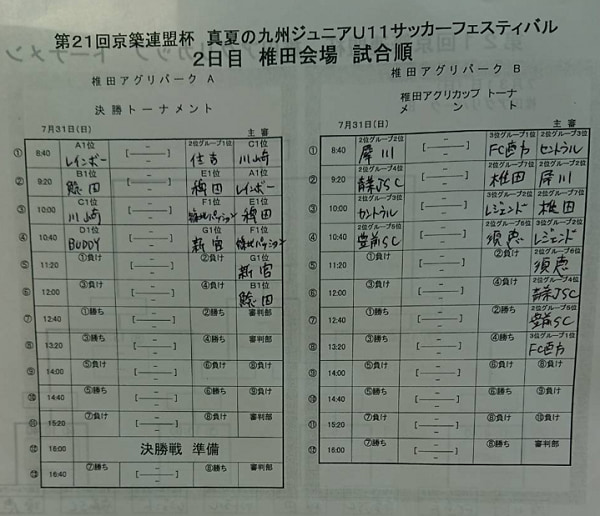 第21回京築連盟杯 真夏の九州ジュニアU11サッカーフェスティバル
2日目 椎田会場 試合順
椎田アグリパーク A
決勝トーナメント
7月31日(日) 主審
A1位 2位グループ1位 C1位
① 8:40 レインボー [ — ] 住吉 川崎
B1位 E1位 A1位
② 9:20 [ — ] レインボー
C1位 F1位 E1位
③ 10:00 川崎 [ — ]
D1位 G1位 F1位
④ 10:40 BUDDY [ — ] 新宮
①負け ②負け G1位
⑤ 11:20 [ — ] 新宮
③負け ④負け B1位
⑥ 12:00 [ — ]
⑦ 12:40 ①勝ち [ — ] ②勝ち 審判部
⑧ 13:20 ③勝ち [ — ] ④勝ち 審判部
⑨ 14:00 ⑤負け [ — ] ⑥負け ⑧負け
⑩ 14:40 ⑤勝ち [ — ] ⑥勝ち ⑨勝ち
⑪ 15:20 ⑦負け [ — ] ⑧負け 審判部
⑫ 16:00 決勝戦 準備
⑬ 16:40 ⑦勝ち [ — ] ⑧勝ち 審判部
椎田アグリパーク B
椎田アグリカップ トーナ
メント
7月31日(日) 主審
2位グループ2位 3位グループ1位 2位グループ3位
① 8:40 犀川 [ — ] セントラル
2位グループ4位 2位グループ7位 2位グループ2位
② 9:20 [ — ] 椎田 犀川
2位グループ3位 3位グループ2位 2位グループ7位
③ 10:00 セントラル [ — ] レジェンド 椎田
2位グループ5位 2位グループ6位 3位グループ2位
④ 10:40 豊前SC [ — ] 須恵 レジェンド
①負け ②負け 2位グループ6位
⑤ 11:20 [ — ] 須恵
③負け ④負け 2位グループ4位
⑥ 12:00 [ — ]
①勝ち ②勝ち 2位グループ5位
⑦ 12:40 [ — ] 豊前SC
③勝ち ④勝ち 3位グループ1位
⑧ 13:20 [ — ]
⑨ 14:00 ⑤負け [ — ] ⑥負け ⑧負け
⑩ 14:40 ⑤勝ち [ — ] ⑥勝ち ⑨勝ち
⑪ 15:20 ⑦負け [ — ] ⑧負け ⑩負け
⑫ 16:00 ⑦勝ち [ — ] ⑧勝ち 審判部